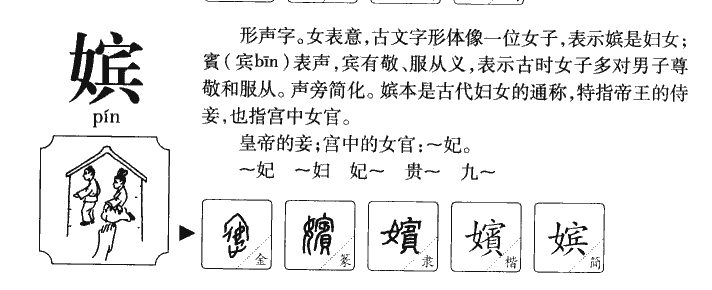 嫔
pín
形声字。女表意，古文字形体像一位女子，表示嫔是妇女；
賓（宾bīn）表声，宾有敬、服从义，表示古时女子多对男子尊
敬和服从。声旁简化。嫔本是古代妇女的通称，特指帝王的侍
妾，也指宫中女官。
皇帝的妾；宫中的女官：～妃。
～妃 ～妇 妃～ 贵～ 九～
金
嬪 篆
嬪 隶
嬪 楷
嫔 简